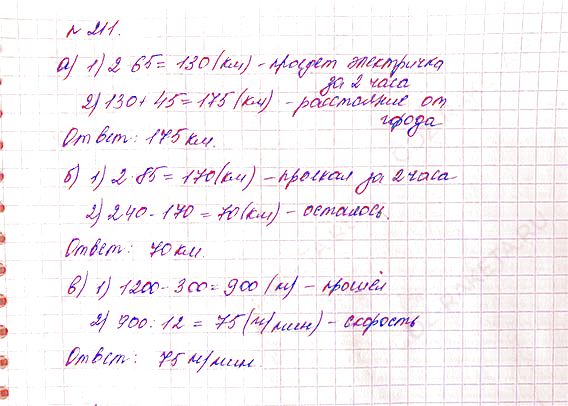 № 211.
а) 1) 2·65 = 130 (км) – проедет электричка
за 2 часа
2) 130 + 45 = 175 (км) – расстояние от
города
Ответ: 175 км.
б) 1) 2·85 = 170 (км) – проехал за 2 часа
2) 240 - 170 = 70 (км) – осталось.
Ответ: 70 км.
в) 1) 1200 - 300 = 900 (м) – прошёл
2) 900 : 12 = 75 (м/мин) – скорость
Ответ: 75 м/мин.